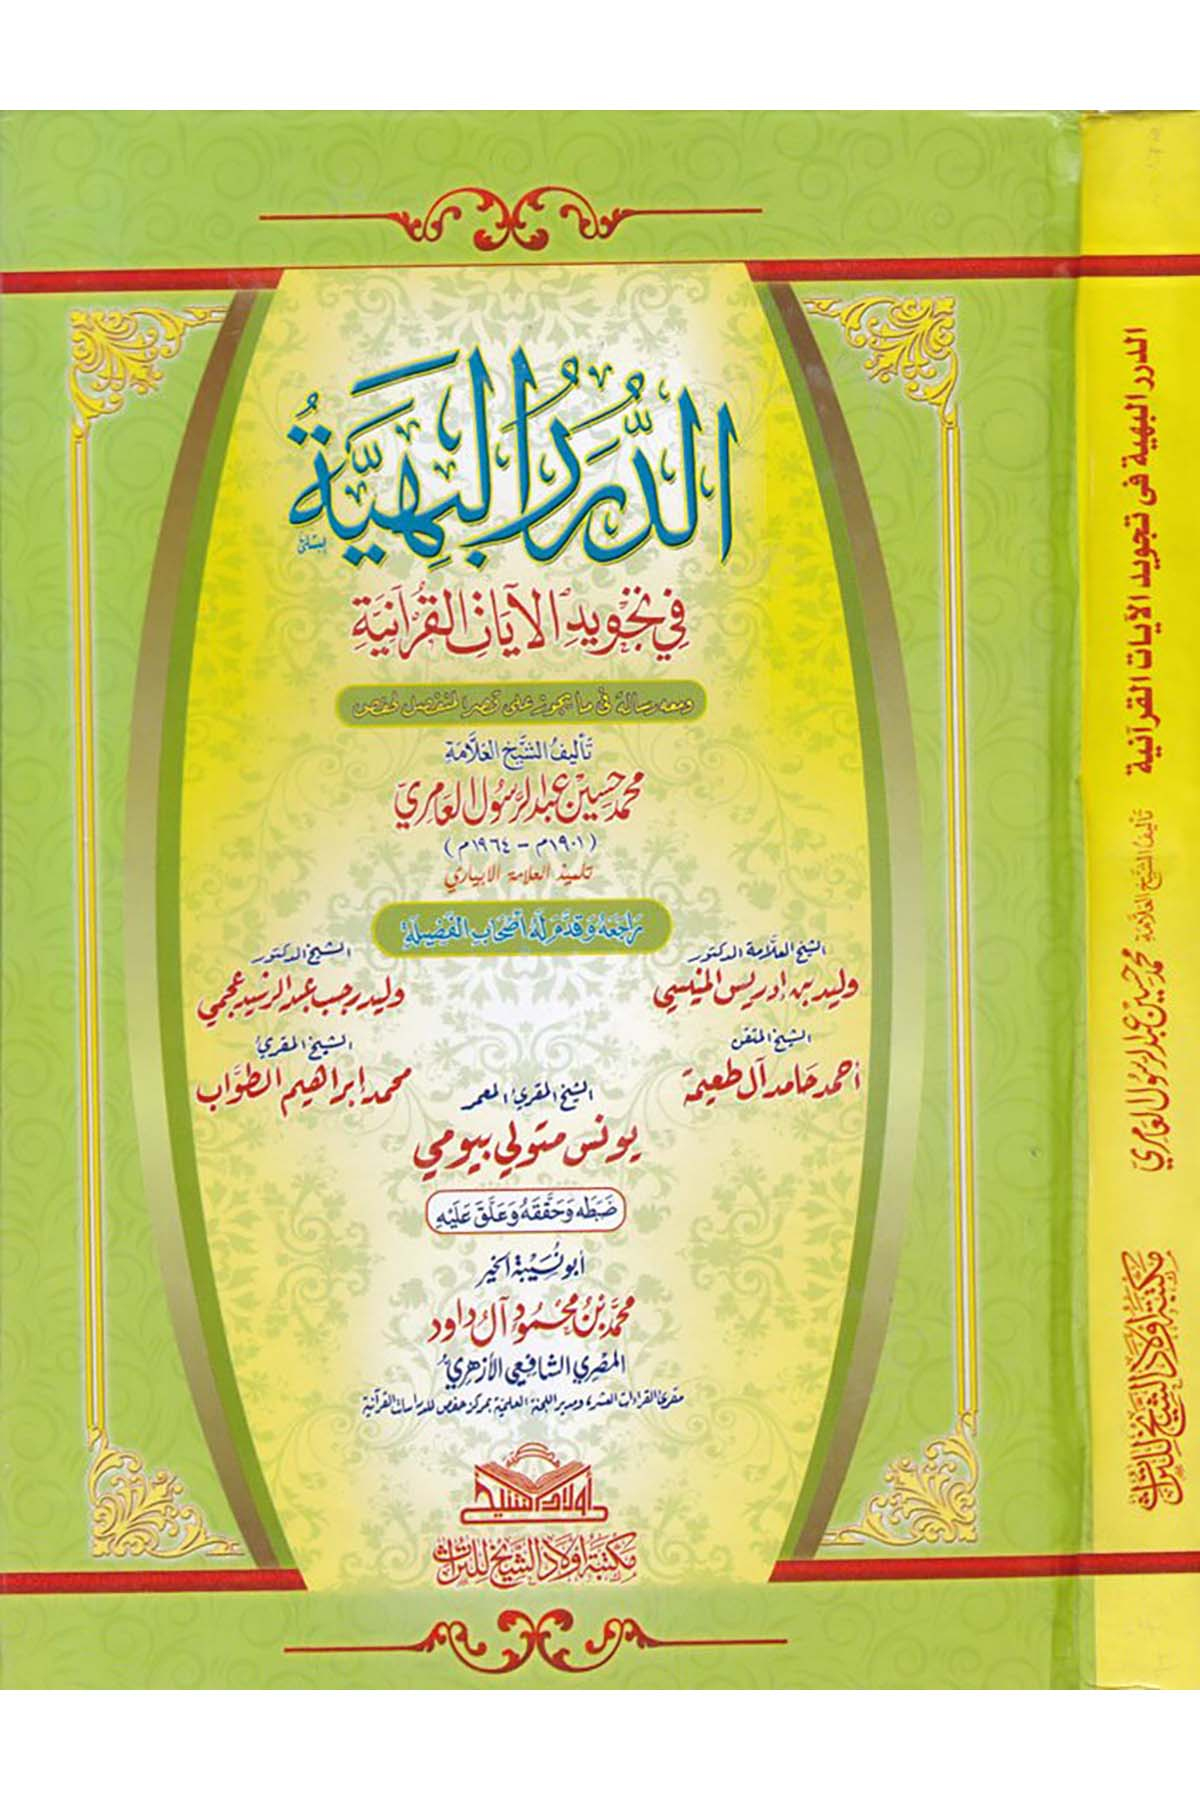 الدُّرَرُ البَهِيَّةُ
فِي تَجْوِيدِ الآيَاتِ القُرْآنِيَّةِ
ومعه رسالة في ما يجوز على قصر المنفصل لحفص
تَأليفُ الشَّيْخِ العَلَّامَةِ
محمد حسين عبد الرسول العامري
(١٩٠١م - ١٩٦٤م)
تلميذ العلامة الابياري
رَاجَعَهُ وَقَدَّمَ لَهُ أصْحَابِ الفَضِيلَة
الشيخ العلَّامة الدكتور
وليد بن إدريس المنيسي
الشيخ الدكتور
وليد رجب عبد الرشيد عجمي
الشيخ المتقن
أحمد حامد آل طعيمة
الشيخ المقرئ
محمد إبراهيم الطوَّاب
الشيخ المقرئ المعمر
يونس متولي بيومي
ضَبَطَه وَحَقَّقَهُ وَعَلَّقَ عَلَيْهِ
أبو نُسَيْبَة الخير
محمَّد بْنُ محْمُود آل داود
المصْرِي الشافِعِي الأزهَري
مقرئ القراءات العشر، ومدير اللجنة العلمية بمركز حفص للدراسات القرآنية
مكتبة
أولاد الشيخ
مكتبة أولاد الشيخ للتراث
الدرر البهية فى تجويد الآيات القرآنية
تأليف الشيخ العلامة
محمد حسين عبد الرسول العامري
مكتبة أولاد الشيخ للتراث